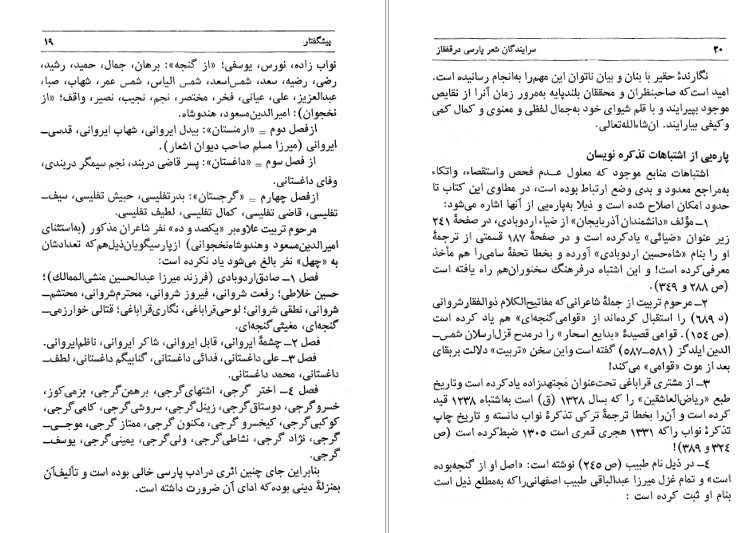 پیشگفتار ۱۹
نواب زاده، نورس، یوسفی؛ «از گنجه»: برهان، جمال، حمید، رشید،
رضی، رضیه، سعد، شمس‌اسعد، شمس الیاس، شمس عمر، شهاب، صبا،
عبدالعزیز، علی، عیانی، فخر، مختصر، نجم، نجیب، نصیر، واقف؛ «از
نخجوان»: امیرالدین‌مسعود، هندوشاه.
ازفصل دوم = «ارمنستان»: بیدل ایروانی، شهاب ایروانی، قدسی-
ایروانی (میرزا مسلم صاحب دیوان اشعار).
از فصل سوم = «داغستان»: پسر قاضی دربند، نجم سیمگر دربندی،
وفای داغستانی.
ازفصل چهارم = «گرجستان»: بدرتفلیسی، حبیش تفلیسی، سیف-
تفلیسی، قاضی تفلیسی، کمال تفلیسی، لطیف تفلیسی.
مرحوم تربیت علاوه‌بر «یکصد و ده» نفر شاعران مذکور (به‌استثنای
امیرالدین‌مسعود و هندوشاه‌نخجوانی) ازپارسیگویان‌ذیل‌هم‌که تعدادشان
به «چهل» نفر بالغ می‌شود یاد نکرده است:
فصل ۱ـ صادق‌اردوبادی (فرزند میرزا عبدالحسین منشی‌الممالك)؛
حسین خلاطی؛ رفعت شروانی، فیروز شروانی، محترم‌شروانی، محتشم-
شروانی، نطقی شروانی؛ لوحی‌قراباغی، نگاری‌قراباغی؛ قتالی خوارزمی-
گنجه‌ای، مغیثی‌گنجه‌ای.
فصل ۲ـ چشمۀ ایروانی، قابل ایروانی، شاکر ایروانی، ناظم‌ایروانی.
فصل ۳ـ علی داغستانی، فدائی داغستانی، گنابیگم داغستانی، لطف-
داغستانی، محمد داغستانی.
فصل ۴ـ اختر گرجی، اشتهای‌گرجی، برهمن‌گرجی، بزمی‌کوز،
خسروگرجی، دوستاق‌گرجی، زینل‌گرجی، سروشی‌گرجی، کامی‌گرجی،
کوکبی‌گرجی، کیخسرو گرجی، مکنون گرجی، ممتاز گرجی، موجـی-
گرجی، نژاد گرجی، نشاطی‌گرجی، ولی‌گرجی، یمینی‌گرجی، یوسف-
گرجی.
بنابراین جای چنین اثری درادب پارسی خالی بوده است و تألیف‌آن
به‌منزلۀ دینی بوده‌که ادای آن ضرورت داشته است.
۲۰ سرایندگان شعر پارسی درقفقاز
نگارندۀ حقیر با بنان و بیان ناتوان این مهم‌را به‌انجام رسانیده است.
امید است که صاحبنظران و محققان بلندپایه به‌مرور زمان آنرا از نقایص
موجود بپیرایند و با قلم شیوای خود به‌جمال لفظی و معنوی و کمال کمی
وکیفی بیارایند. ان‌شاءالله‌تعالی.
پاره‌یی از اشتباهات تذکره نویسان
اشتباهات منابع موجود که معلول عـدم فحص واستقصاء، واتکاء
به‌مراجع معدود و بدی وضع ارتباط بوده است، در مطاوی این کتاب تا
حدود امکان اصلاح شده است و ذیلا به‌پاره‌یی از آنها اشاره می‌شود:
۱ـ مؤلف «دانشمندان آذربایجان» از ضیاء اردوبادی، در صفحۀ ۲۴۱
زیر عنوان «ضیائی» یادکرده است و در صفحۀ ۱۸۷ قسمتی از ترجمۀ
او را بنام «شاه‌حسین اردوبادی» آورده و بخطا تحفۀ سامی‌را هم مأخذ
معرفی‌کرده است! و این اشتباه درفرهنگ سخنوران‌هم راه یافته است
(ص ۲۸۸ و ۳۴۹).
۲ـ مرحوم تربیت از جملۀ شاعرانی که مفاتیح‌الکلام ذوالفقارشروانی
(د ۶۸۹) را استقبال کرده‌اند از «قوامی‌گنجه‌ای» هم یاد کرده است
(ص ۱۵۴). قوامی قصیدۀ «بدایع اسحار» را درمدح قزل‌ارسلان شمس-
الدین ایلدگز (۵۸۱ـ۵۸۷) گفته است‌واین سخن «تربیت» دلالت بربقای
بعد از موت «قوامی» می‌کند!
۳ـ از مشتری قراباغی تحت‌عنوان مجتهدزاده یادکرده است‌وتاریخ
طبع «ریاض‌العاشقین» را که بسال ۱۳۲۸ (ق) است به‌اشتباه ۱۲۳۸ قید
کرده است و آن‌را بخطا ترجمۀ ترکی تذکرۀ نواب دانسته و تاریخ چاپ
تذکرۀ نواب راکه ۱۳۳۱ هجری قمری است ۱۳۰۵ ضبط‌کرده است (ص
۳۲۴ و ۳۸۹)!
۴ـ در ذیل نام طبیب (ص ۲۴۵) نوشته است: «اصل او از گنجه‌بوده
است» و تمام غزل میرزا عبدالباقی طبیب اصفهانی‌راکه به‌مطلع ذیل است
بنام او ثبت کرده است :